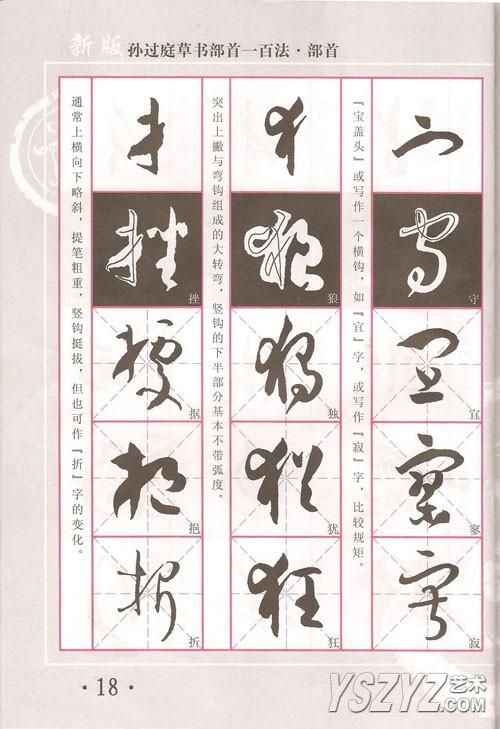 新版 孙过庭草书部首一百法·部首
守
宜
寥
寂
『宝盖头』或写作一个横钩，如『宜』字，或写作『寂』字，比较规矩。
狼
独
犹
狂
突出上撇与弯钩组成的大转弯，竖钩的下半部分基本不带弧度。
挫
据
挹
折
通常上横向下略斜，提笔粗重，竖钩挺拔，但也可作『折』字的变化。
·18·
YSZYZ艺术.COM